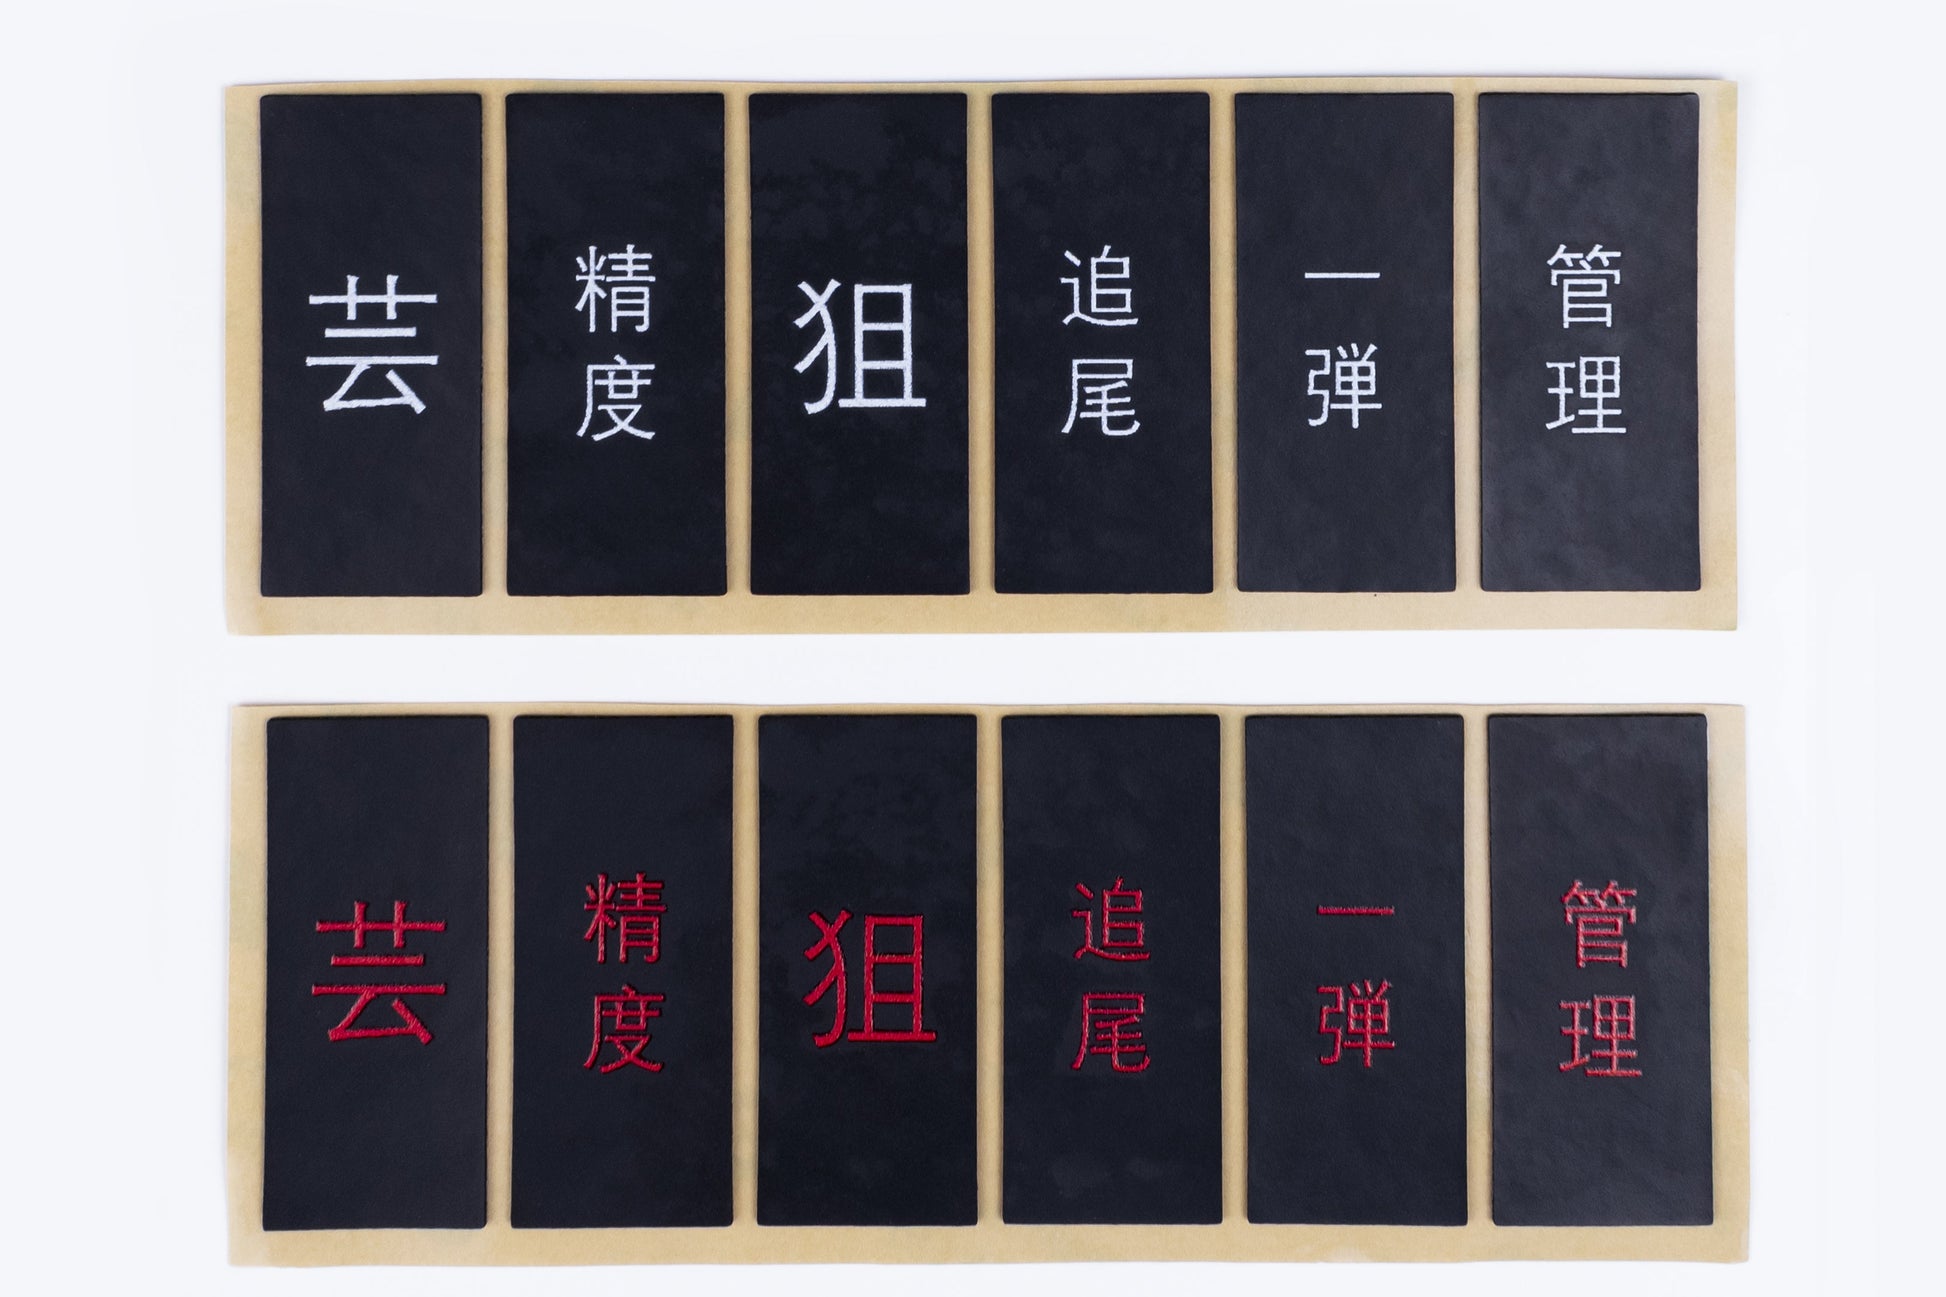 芸
精度
狙
追尾
一弾
管理
芸
精度
狙
追尾
一弾
管理